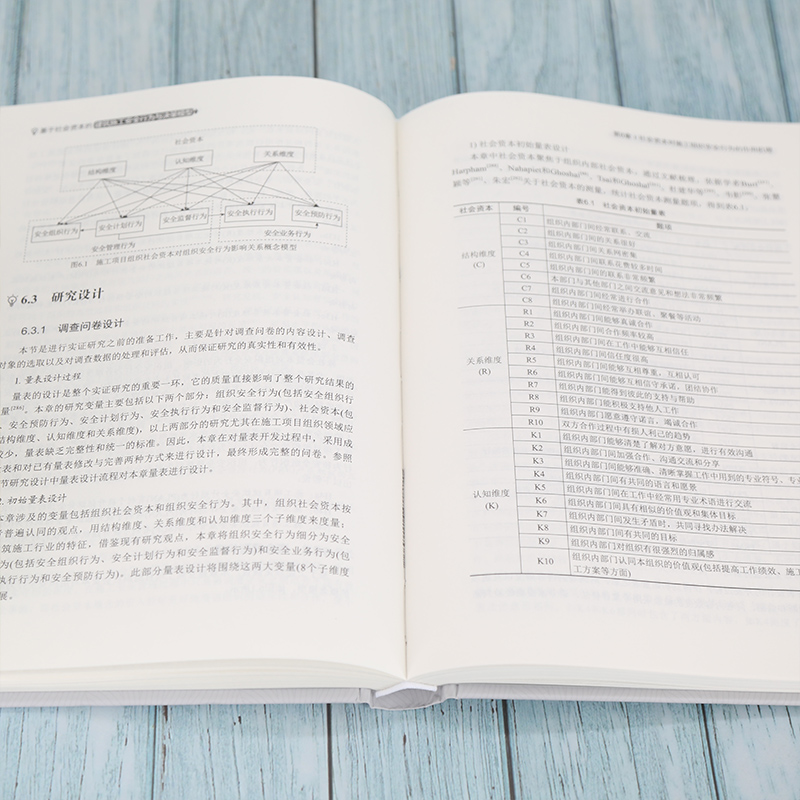 基于社会资本的建筑施工安全行为与决策模型
社会资本
结构维度
认知维度
关系维度
安全组织行为
安全计划行为
安全监督行为
安全执行行为
安全预防行为
安全管理行为
安全业务行为
图6.1 施工项目组织社会资本对组织安全行为影响关系概念模型
6.3 研究设计
6.3.1 调查问卷设计
本节是进行实证研究之前的准备工作，主要是针对调查问卷的内容设计、调查
对象的选取以及对调查数据的处理和评估，从而保证研究的真实性和有效性。
1. 量表设计过程
量表的设计是整个实证研究的重要一环，它的质量直接影响了整个研究结果的
量[288]。本章的研究变量主要包括以下两个部分：组织安全行为(包括安全组织行
、安全预防行为、安全计划行为、安全执行行为和安全监督行为)、社会资本(包
结构维度、认知维度和关系维度)，以上两部分的研究尤其在施工项目组织领域应
较少，量表缺乏完整性和统一的标准。因此，本章在对量表开发过程中，采用成
表和对已有量表修改与完善两种方式来进行设计，最终形成完整的问卷。参照
节研究设计中量表设计流程对本章量表进行设计。
2. 初始量表设计
本章涉及的变量包括组织社会资本和组织安全行为。其中，组织社会资本按
普遍认同的观点，用结构维度、关系维度和认知维度三个子维度来度量；
筑施工行业的特征，借鉴现有研究观点，本章将组织安全行为细分为安全
为(包括安全组织行为、安全计划行为和安全监督行为)和安全业务行为(包
执行行为和安全预防行为)。此部分量表设计将围绕这两大变量(8个子维度
展。
1) 社会资本初始量表设计
本章中社会资本聚焦于组织内部社会资本，通过文献梳理，依据学者Burt
Harpham、Nahapiet和Ghoshal、Tsai和Ghoshal、杜建华等、
颖等、朱宏关于社会资本的测量，统计社会资本测量题项，得到表6.1。
表6.1 社会资本初始量表
社会资本 编号 题项
结构维度(C)
C1 组织内部门间经常联系、交流
C2 组织内部门间的关系很好
C3 组织内部门间关系网密集
C4 组织内部门间联系花费较多时间
C5 组织内部门间的联系非常频繁
C6 本部门与其他部门之间交流意见和想法非常频繁
C7 组织内部门间经常进行合作
C8 组织内部门间经常举办联谊、聚餐等活动
关系维度(R)
R1 组织内部门间能够真诚合作
R2 组织内部门间合作频率较高
R3 组织内部门间在工作中能够互相信任
R4 组织内部门间信任度很高
R5 组织内部门间能够互相尊重，互相认可
R6 组织内部门间能够互相信守承诺，团结协作
R7 组织内部门间能得到彼此的支持与帮助
R8 组织内部门能积极支持他人工作
R9 组织内部门愿意遵守诺言，竭诚合作
R10 双方合作过程中有损人利己的趋势
认知维度(K)
K1 组织内部门能够清楚了解对方意愿，进行有效沟通
K2 组织内部门间加强合作、沟通交流和分享
K3 组织内部门间能够准确、清晰掌握工作中用到的专业符号、专业
K4 组织内部门间有共同的语言和愿景
K5 组织内部门间在工作中经常用专业术语进行交流
K6 组织内部门间具有相似的价值观和集体目标
K7 组织内部门间发生矛盾时，共同寻找办法解决
K8 组织内部门间有共同的目标
K9 组织内部门对组织有很强烈的归属感
K10 组织内部门认同本组织的价值观(包括提高工作绩效、施工
工方案等方面)